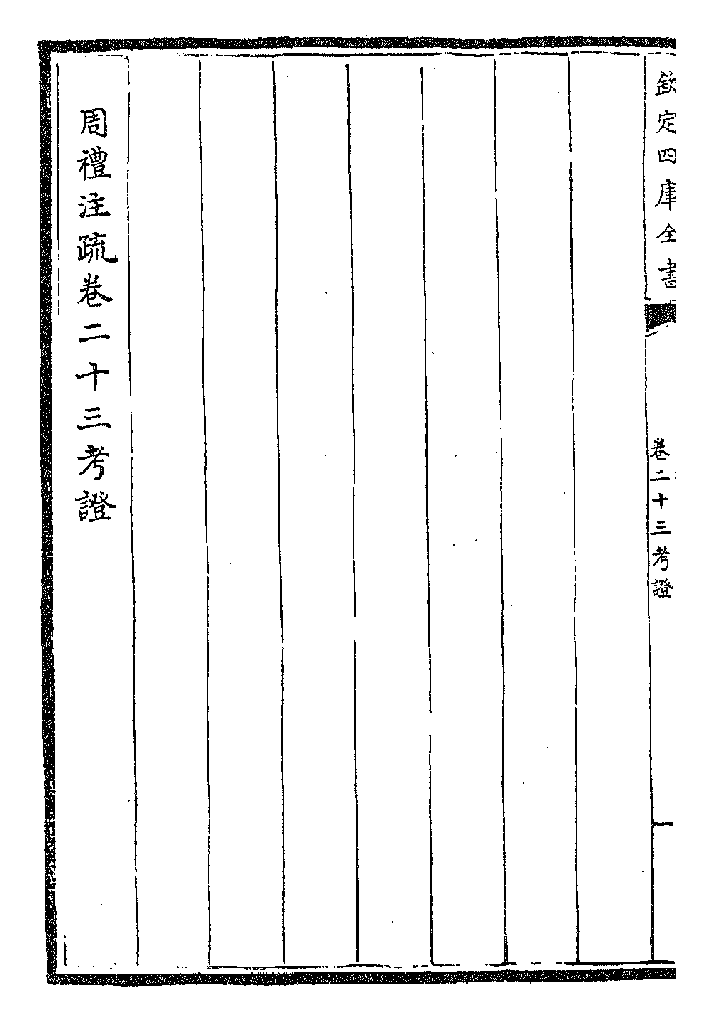 欽定四庫全書
卷二十三考證
周禮注疏卷二十三考證